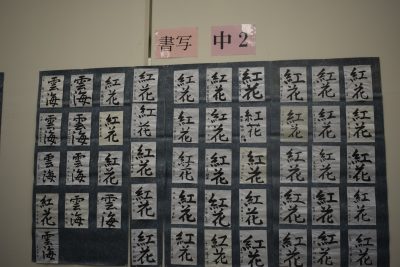 書写 中2
雲海 雲海 紅花 紅花 紅花 紅花 紅花 紅花 紅花 紅花
雲海 雲海 紅花 紅花 紅花 紅花 紅花 紅花 紅花 紅花
雲海 雲海 紅花 紅花 紅花 紅花 紅花 紅花 紅花 紅花
紅花 雲海 雲海 紅花 紅花 紅花 紅花 紅花 紅花 紅花
雲海 紅花 紅花 紅花 紅花 紅花 紅花 紅花